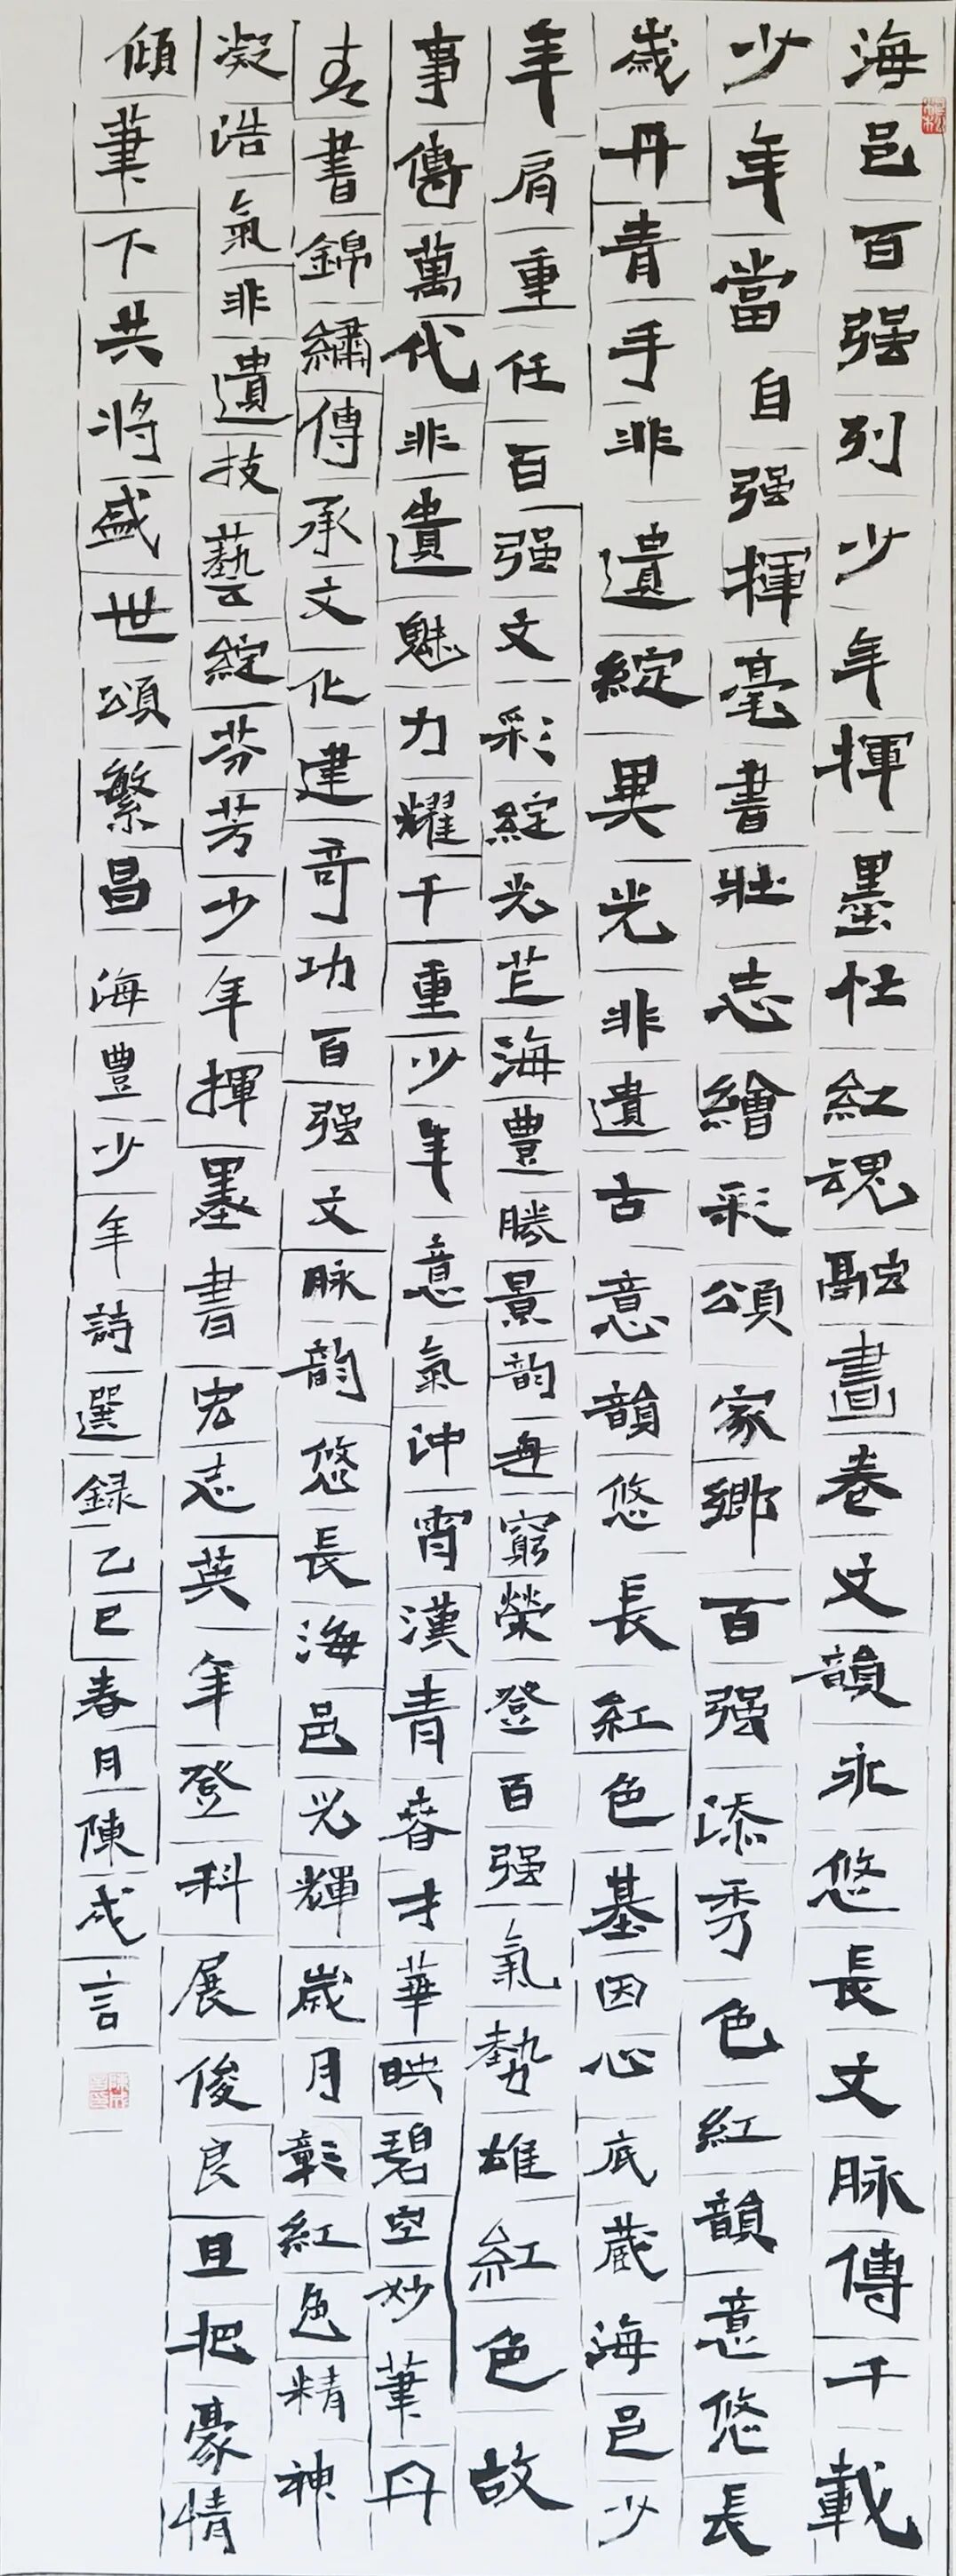 海邑百强列少年揮墨忙紅魂融畫卷文韻永悠長文脉傳千載
少年當自强揮毫書壯志繪彩頌家鄉百强添秀色紅韻意悠長
歲丹青手非遺綻異光非遺古意韻悠長紅色基因心底藏海邑少
年肩重任百强文彩綻光芒海豐勝景韵無窮榮登百强氣勢雄紅色故
事傳萬代非遺魅力耀千重少年意氣沖霄漢青春才華映碧空妙筆丹
青書錦繡傳承文化建奇功百强文脉韵悠長海邑光輝歲月彰紅色精神
凝浩氣非遺技藝綻芬芳少年揮墨書宏志英年登科展俊良且把豪情
傾筆下共將盛世頌繁昌海豐少年詩選錄乙巳春月陳成言